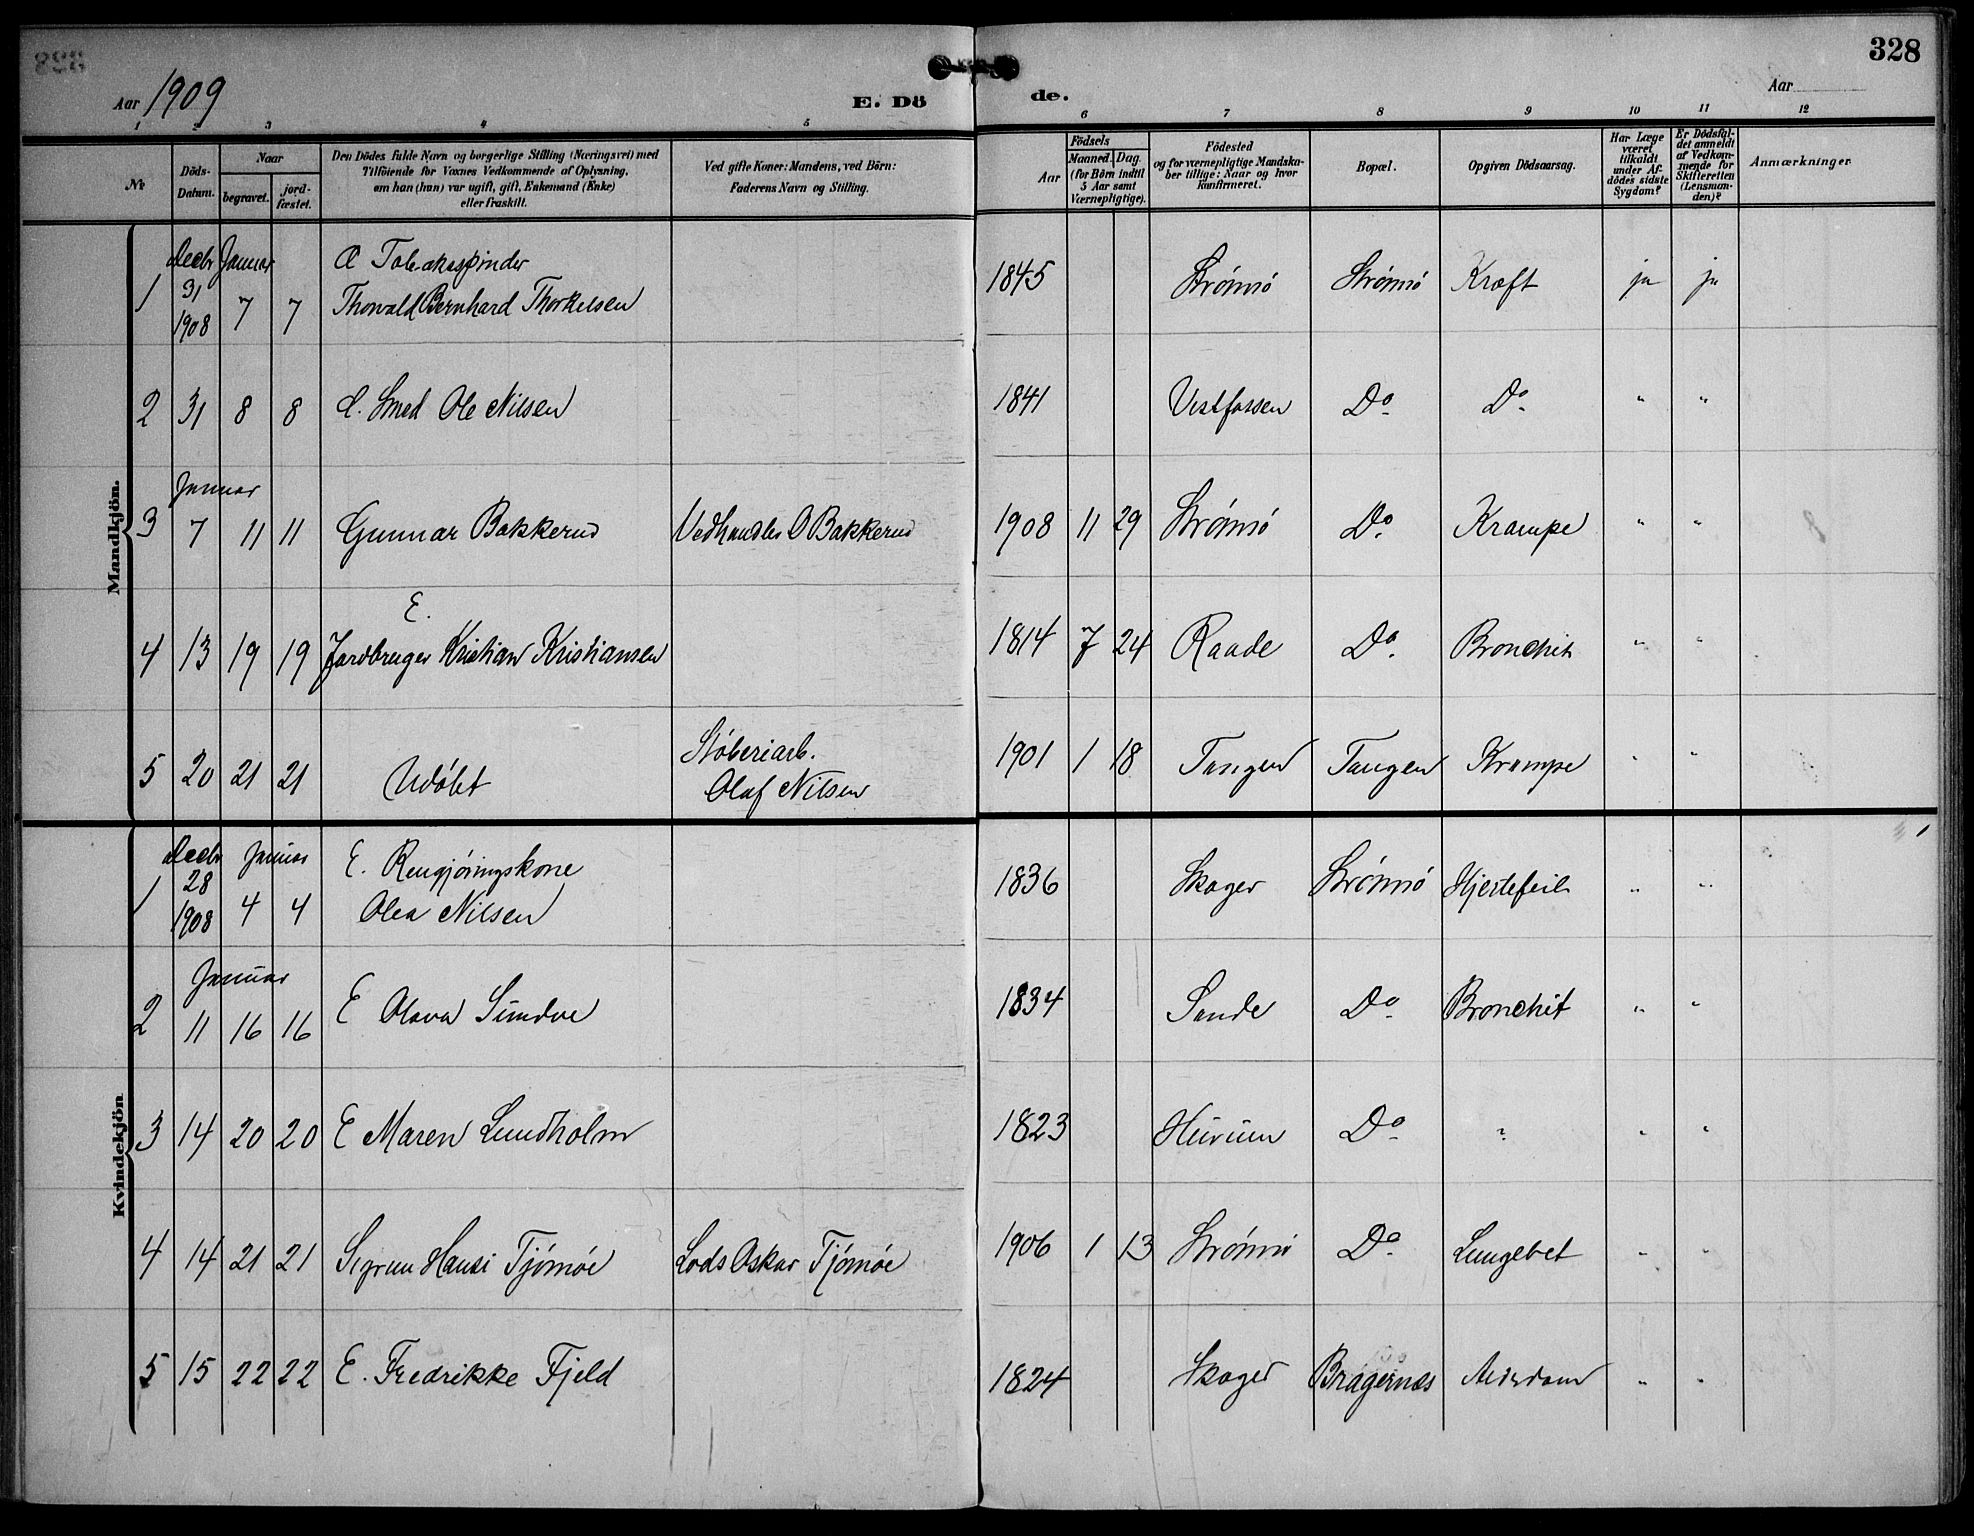 328
Aar 1909
E. Dö
de.
Aar
1 2 3 4 5 6 7 8 9 10 11 12
№
Döds-
Datum.
Naar
begravet.
jord-
fæstet.
Den Dödes fulde Navn og borgerlige Stilling (Næringsvei) med
Tilföiende for Voxnes Vedkommende af Oplysning,
om han (hun) var ugift, gift, Enkemand (Enke)
eller fraskilt.
Ved gifte Koner: Mandens, ved Börn:
Faderens Navn og Stilling.
Aar
Födsels
Maaned. Dag
(for Börn indtil
5 Aar samt
Værnepligtige).
Födested
og for værnepligtige Mandska-
ber tillige: Naar og hvor
konfirmeret.
Bopæl.
Opgiven Dödsaarsag.
Har Læge
været
tilkaldt
under Af-
dödes sidste
Sygdom?
Er Dödsfal-
det anmeldt
af Vedkom-
mende for
Skifteretten
(Lensman-
den)?
Anmærkninger
Mandkjön.
Decbr Januar
1 31 1908 7 7 Tobakspinder
Thorvald Bernhard Thorkelsen 1845 Strömsö Strömsö Kræft ja ja
2 31 8 8 Smed Ole Nilsen 1841 Vestfossen Do Do " "
Januar
3 7 11 11 Gunnar Bakkerud Vedhandler O Bakkerud 1908 11 29 Strömsö Do Krampe " "
E.
4 13 19 19 Jordbruger Kristian Kristiansen 1814 7 24 Raade Do Bronchit " "
5 20 21 21 Udöbt Stöberiarb.
Olaf Nilsen 1901 1 18 Tangen Tangen Krampe " "
Kvindekjön
Decbr Januar
1 28 1908 4 4 E. Rengjöringskone
Olea Nilsen 1836 Skoger Strömsö Hjertefeil " "
Januar
2 11 16 16 E Olava Sundve 1834 Sande Do Bronchit " "
3 14 20 20 E Maren Lundholm 1823 Hurum Do ? " "
4 14 21 21 Sigrun Hansi Tjömöe Lods Oskar Tjömöe 1906 1 13 Strömsö Do Lungebet " "
5 15 22 22 E. Fredrikke Fjeld 1824 Skoger Bragernæs Alderdom " "